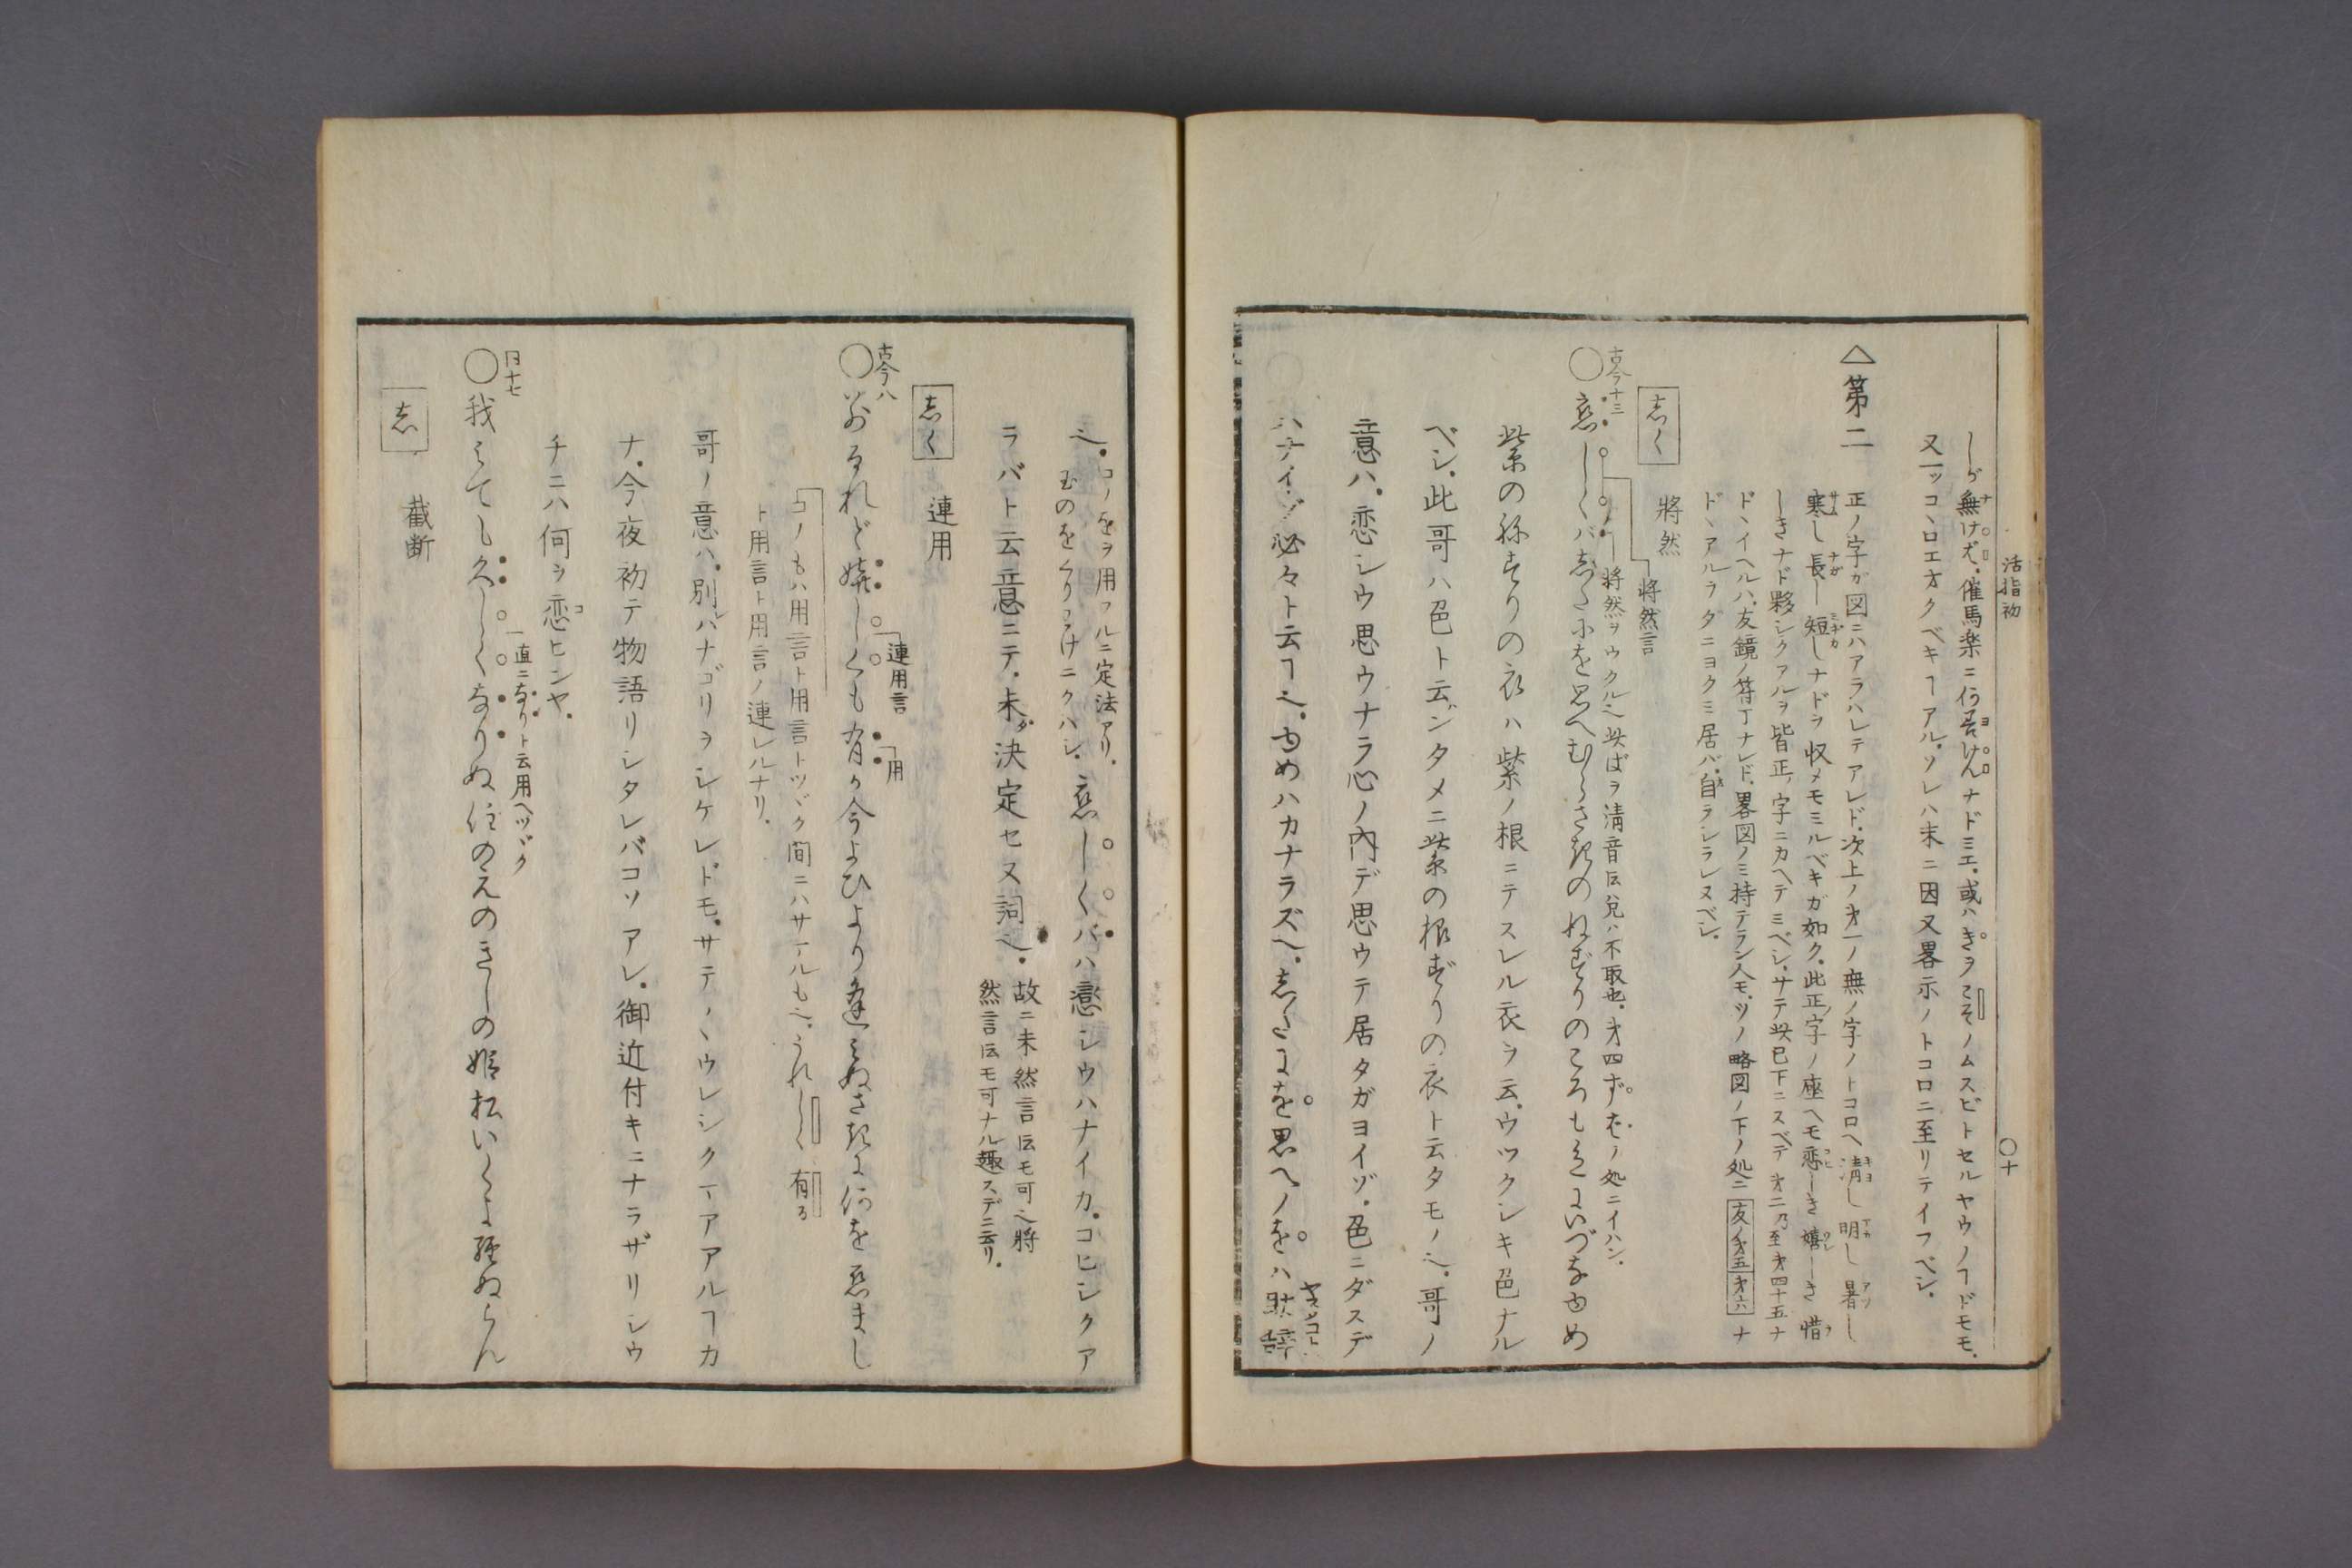 活指初
〇十
しが無けれ。催馬楽ニ何善けんナドミエ。或ハきヲこそノムスビトセルヤウノヿドモモ。
又一ッコヽロエオクベキヿアル。ソレハ末ニ因又畧示ノトコロニ至リテイフベシ。
△第二
正ノ字ガ図ニハアラハレテアレド。次上ノ才一ノ無ノ字ノトコロヘ清し明し暑し
寒し長し短しナドヲ収メモミルベキガ如ク。此正ノ字ノ座ヘモ恋しき嬉しき惜
しきナド夥シクアルヲ皆正ノ字ニカヘテミベシ。サテ此已下ニスベテ才二乃至才四十五ナ
ドヽイヘルハ。友鏡ノ符丁ナレド。畧図ノミ持テラン人モ。ソノ略図ノ下ノ処ニ友ノ才五才六ナ
ドヽアルヲダニヨクミ居バ。自ラシラレヌベシ。
志く 将然
将然言
将然ヲウクル也此ばヲ清音云兌ハ不取也。才四ずはノ処ニイハン。
古今十三
〇恋しくバ志たにを思へむらさきのねずりのころもも色にいづなゆめ
紫の祢ずりの衣ハ紫ノ根ニテスレル衣ヲ云。ウツクシキ色ナル
ベシ。此哥ハ色ト云ンタメニ紫の根ずりの衣ト云タモノ也。哥ノ
意ハ。恋シウ思ウナラ心ノ内デ思ウテ居タガヨイゾ。色ニダスデ
ハナイゾ必々ト云ヿ也。ゆめハカナラズ也。志たにを思へノをハ助辞
也。コノをヲ用フルニ定法アリ。
恋しくバハ戀シウハナイカ。コヒシクア
ラバト云意ニテ。未ダ決定セヌ詞也。
故ニ未然言伝モ可也将
然言伝モ可ナル趣スデニ云リ。
志く 連用
連用言
用
古今八
〇別るれど嬉しくも有か今よひより逢みぬさきに何を恋まし
コノもハ用言ト用言トツヾク間ニハサマルも也。うれしく有る
ト用言ト用言ノ連レルナリ。
哥ノ意ハ。別レバナゴリヲシケレドモ。サテ〳〵ウレシクマアアルヿカ
ナ。今夜初テ物語リシタレバコソアレ。御近付キニナラザリシウ
チニハ何ヲ恋ヒンヤ。
同十七
一直ニなりト云用ヘツヾク
〇我みても久しくなりぬ住のえのきしの姫松いくよ経ぬらん
志 截断